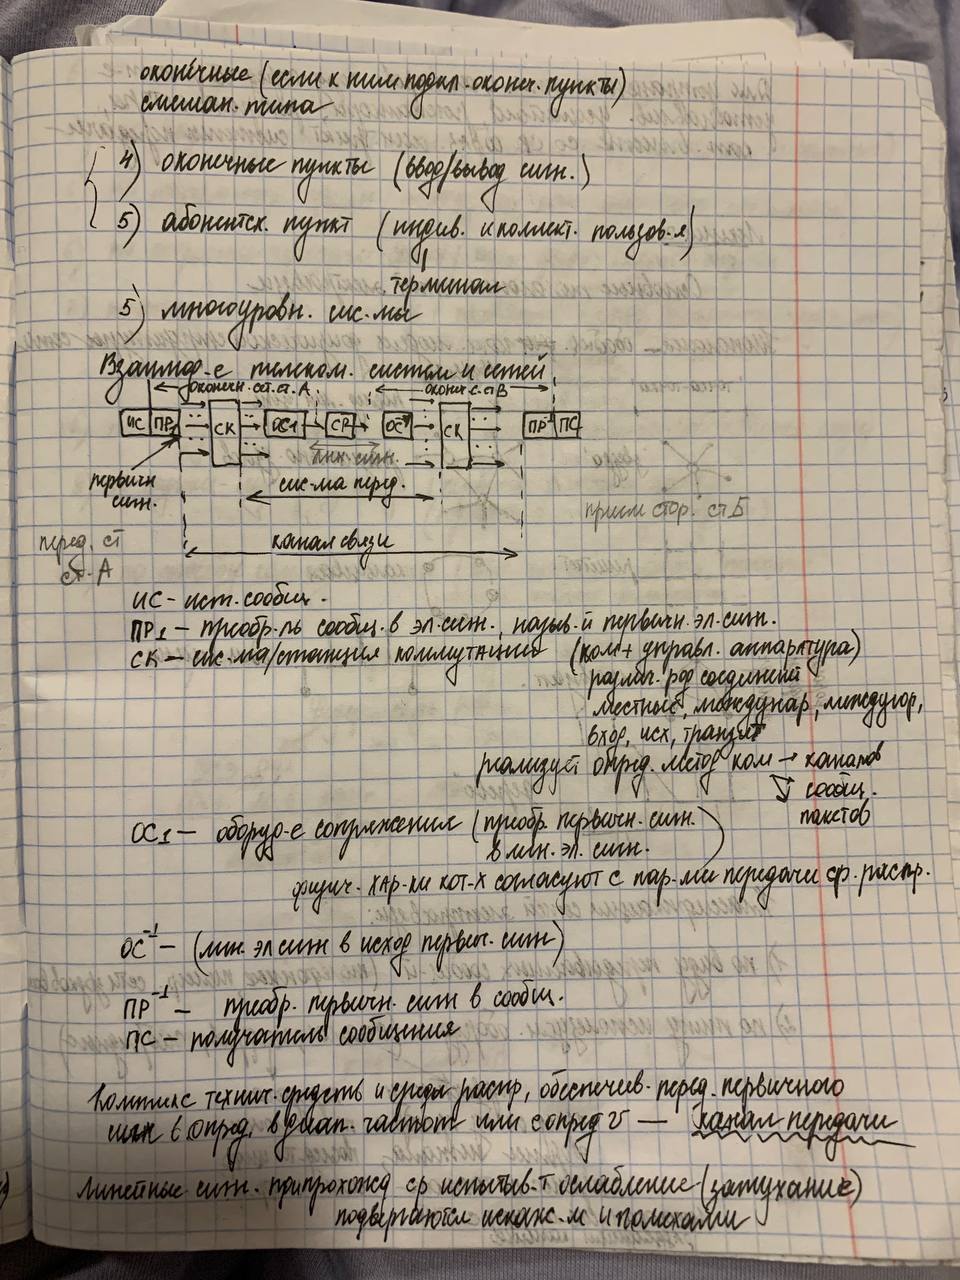 оконечные (если к ним подкл. оконеч. пункты)
смешан. типа
4) оконечные пункты (ввод/вывод сигн.)
5) абонентск. пункт (индив. и коллект. пользов-я)
терминал
5) многоуровн. сис-мы
Взаимод-е телеком. систем и сетей
оконечн. ст. ст. А оконеч. с. ст В
ИС ПР1 СК ОС1 СР ОС⁻¹ СК ПР⁻¹ ПС
лин. сигн.
первичн сигн.
сис-ма перед.
прием стор. ст Б
перед. ст ст. А
канал связи
ИС - ист. сообщ.
ПР1 – преобр-ль сообщ. в эл. сигн., назыв-й первичн. эл. сигн.
СК – сис-ма/станция коммутации (ком + управл. аппаратура)
различ. род соединений
местные, междунар, междугор,
вход, исх, транзит
реализует опред. метод ком → каналов
↘ сообщ.
пакетов
ОС1 – оборуд-е сопряжения (преобр. первичн. сигн.
в лин. эл. сигн.
физич. хар-ки кот-х согласуют с пар-ми передачи ср. распр.
ОС⁻¹ – (лин. эл сигн в исход первич. сигн)
ПР⁻¹ – преобр. первичн. сигн в сообщ.
ПС – получатель сообщения
Комплекс технич. средств и среды распр, обеспечив. перед. первичного
сигн в опред. в диап. частот или с опред v — канал передачи
Линейные сигн. при прохожд ср испытыв-т ослабление (затухание)
подвергаются искаж-м и помехами